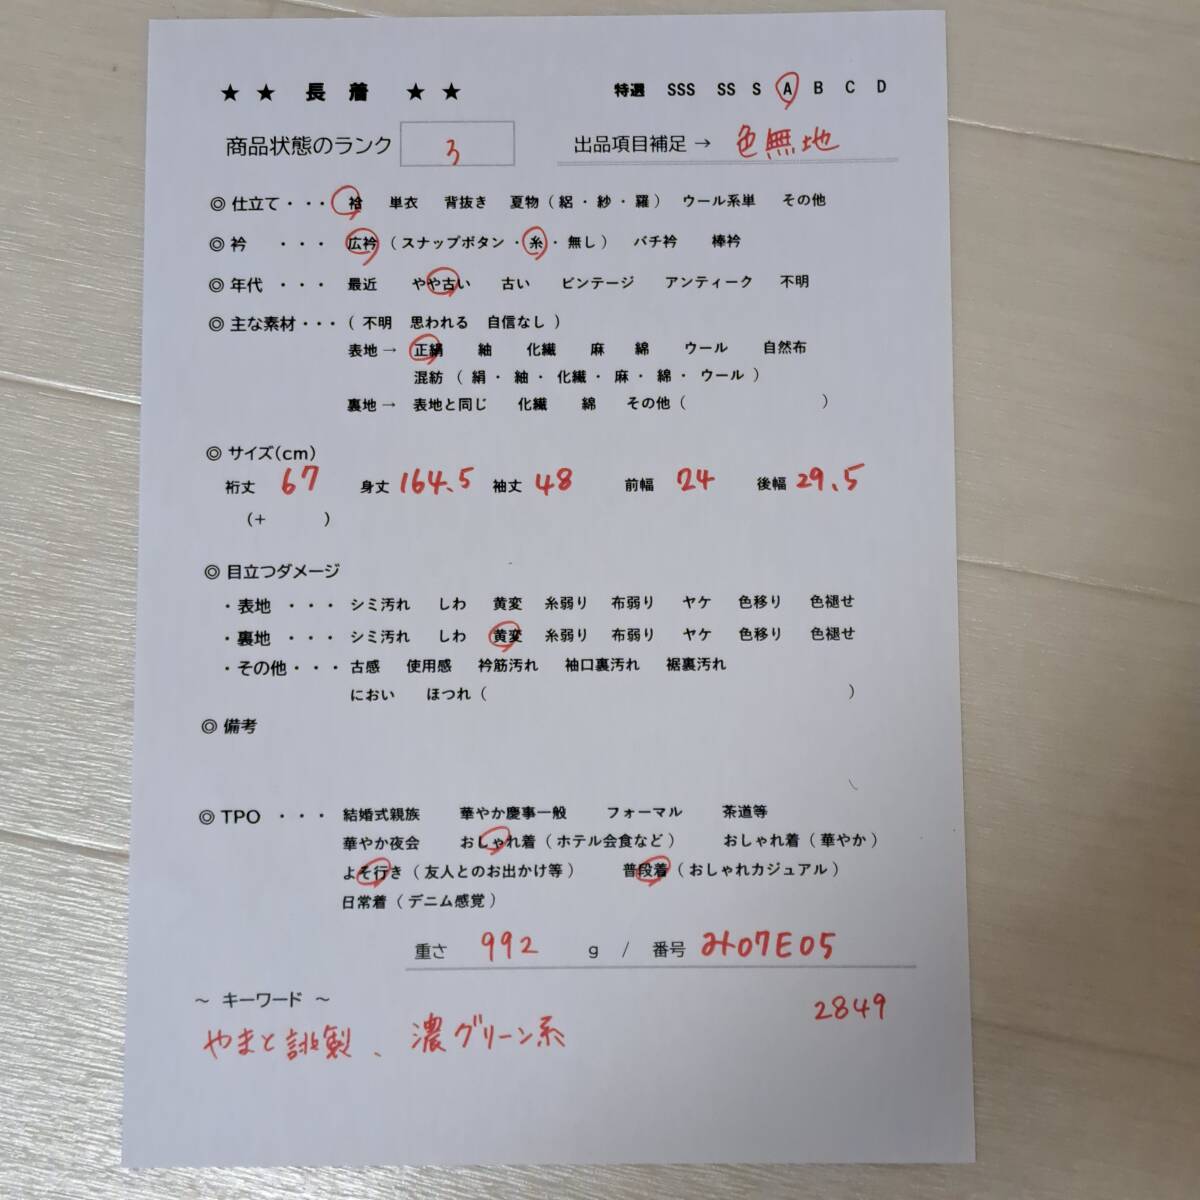 ★ ★ 長 着 ★ ★ 特選 SSS SS S A B C D
商品状態のランク 3 出品項目補足 → 色無地
◎ 仕立て・・・ 袷 単衣 背抜き 夏物（絽・紗・羅） ウール系単 その他
◎ 衿 ・・・ 広衿（スナップボタン・糸・無し） バチ衿 棒衿
◎ 年代 ・・・ 最近 やや古い 古い ビンテージ アンティーク 不明
◎ 主な素材・・・（ 不明 思われる 自信なし ）
表地→ 正絹 紬 化繊 麻 綿 ウール 自然布
混紡 （ 絹・ 紬・ 化繊・ 麻・ 綿・ ウール ）
裏地→ 表地と同じ 化繊 綿 その他（ ）
◎ サイズ(cm)
裄丈 67 身丈 164.5 袖丈 48 前幅 24 後幅 29.5
(+ )
◎ 目立つダメージ
・表地 ・・・ シミ汚れ しわ 黄変 糸弱り 布弱り ヤケ 色移り 色褪せ
・裏地 ・・・ シミ汚れ しわ 黄変 糸弱り 布弱り ヤケ 色移り 色褪せ
・その他・・・ 古感 使用感 衿筋汚れ 袖口裏汚れ 裾裏汚れ
におい ほつれ（ ）
◎ 備考
◎ TPO ・・・ 結婚式親族 華やか慶事一般 フォーマル 茶道等
華やか夜会 おしゃれ着（ホテル会食など） おしゃれ着（華やか）
よそ行き（友人とのお出かけ等） 普段着（おしゃれカジュアル）
日常着（デニム感覚）
重さ 992 g / 番号 み07E05
～ キーワード ～ 2849
やまと誂製、濃グリーン系